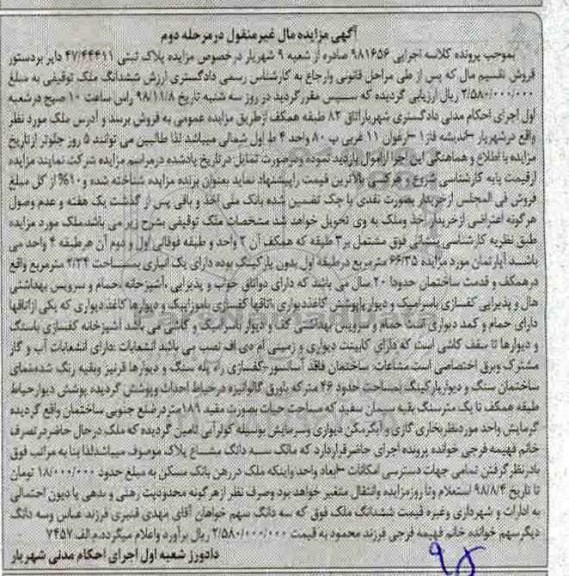 آگهی مزایده مال غیر منقول در مرحله دوم
بموجب پرونده کلاسه اجرایی ۹۸۱۶۵۶ صادره از شعبه ۹ شهریار در خصوص مزایده پلاک ثبتی ۴۷/۴۴۴۱۱ دایر بر دستور
فروش تقسیم مال که پس از طی مراحل قانونی وارجاع به کارشناس رسمی دادگستری ارزش ششدانگ ملک توقیفی به مبلغ
۲/۵۸۰/۰۰۰/۰۰۰ ریال ارزیابی گردیده که سپس مقرر گردید در روز سه شنبه تاریخ ۹۸/۱۱/۸ راس ساعت ۱۰ صبح در شعبه
اول اجرای احکام مدنی دادگستری شهریار اتاق ۸۲ طبقه همکف از طریق مزایده عمومی به فروش برسد و آدرس ملک مورد نظر
واقع در شهریار -اندیشه فاز۱ -ارغوان ۱۱ غربی پ ۸۰ واحد ۴ ط اول شمالی میباشد لذا طالبین می توانند ۵ روز جلوتر از تاریخ
مزایده با اطلاع و هماهنگی این اجرا از اموال بازدید نموده ودر صورت تمایل در تاریخ یادشده در مراسم مزایده شرکت نمایند مزایده
از قیمت پایه کارشناسی شروع و هر کسی بالاترین قیمت را پیشنهاد نماید بعنوان برنده مزایده شناخته شده و ۱۰% از کل مبلغ
فروش فی المجلس از خریدار بصورت نقدی یا چک تضمین شده بانک ملی اخذ و باقی پس از گذشت یک هفته و عدم وصول
هرگونه اعتراضی از خریدار اخذ وملک به وی تحویل خواهد شد مشخصات ملک توقیفی بشرح زیر می باشد.ملک مورد مزایده
طبق نظریه کارشناسی بنشانی فوق مشتمل بر ۳ طبقه که همکف آن ۲ واحد و طبقه فوقانی اول و دوم آن هر طبقه ۴ واحد می
باشد. آپارتمان مورد مزایده ۶۶/۳۵ متر مربع در طبقه اول بدون پارکینگ بوده دارای یک انباری بمساحت ۲/۳۴ مترمربع واقع
در همکف و قدمت ساختمان حدودا ۲۰ سال می باشد که دارای دواتاق خواب و پذیرایی ،آشپزخانه ،حمام و سرویس بهداشتی
هال و پذیرایی کفسازی باسرامیک و دیوار باپوشش کاغذ دیواری ،اتاقها کفسازی باموزاییک و دیوارها کاغذ دیواری که یکی از اتاقها
دارای حمام و کمد دیواری است حمام و سرویس بهداشتی کف و دیوار باسرامیک و کاشی می باشد آشپزخانه کفسازی باسنگ
و دیوارها تا سقف کاشی است که دارای کابینت دیواری و زمینی ام دی اف نصب می باشد انشعابات :دارای انشعابات آب و گاز
مشترک وبرق اختصاصی است.مشاعات: ساختمان فاقد آسانسور-کفسازی راه پله سنگ و دیوارها قرنیز وبقیه رنگ شده،نمای
ساختمان سنگ و دیوار پارکینگ بمساحت حدود ۴۶ متر که باورق گالوانیزه در حیاط احداث وپوشش گردیده پوشش دیوار حیاط
طبقه همکف تا یک متر سنگ بقیه سیمان سفید که مساحت حیات بصورت مقید ۱۸۹ متر در ضلع جنوبی ساختمان واقع گردیده
گرمایش واحد مورد نظر بخاری گازی و آبگرمکن دیواری وسرمایش بوسیله کولر آبی تامین گردیده که ملک در حال حاضر در تصرف
خانم فهیمه فرجی خوانده پرونده اجرای حاضر قرار دارد که مالک سه دانگ مشاع پلاک موصوف میباشد لذا بنا به مراتب فوق
بادر نظر گرفتن تمامی جهات دسترسی امکانات -ابعاد واحد واینکه ملک در رهن بانک مسکن به مبلغ حدود ۱۸/۰۰۰/۰۰۰ تومان
تا تاریخ ۹۸/۸/۴ استعلام وتا روز مزایده وانتقال متغیر خواهد بود وصرف نظر از هر گونه محدودیت رهنی و بدهی یا دیون احتمالی
به ادارات و شهرداری وغیره قیمت ششدانگ ملک فوق که سه دانگ سهم خواهان آقای مهدی قنبری فرزند عباس وسه دانگ
دیگر سهم خوانده خانم فهیمه فرجی فرزند محمود به قیمت ۲/۵۸۰/۰۰۰/۰۰۰ ریال برآورد واعلام میگردد.م.الف ۷۴۵۷
دادورز شعبه اول اجرای احکام مدنی شهریار